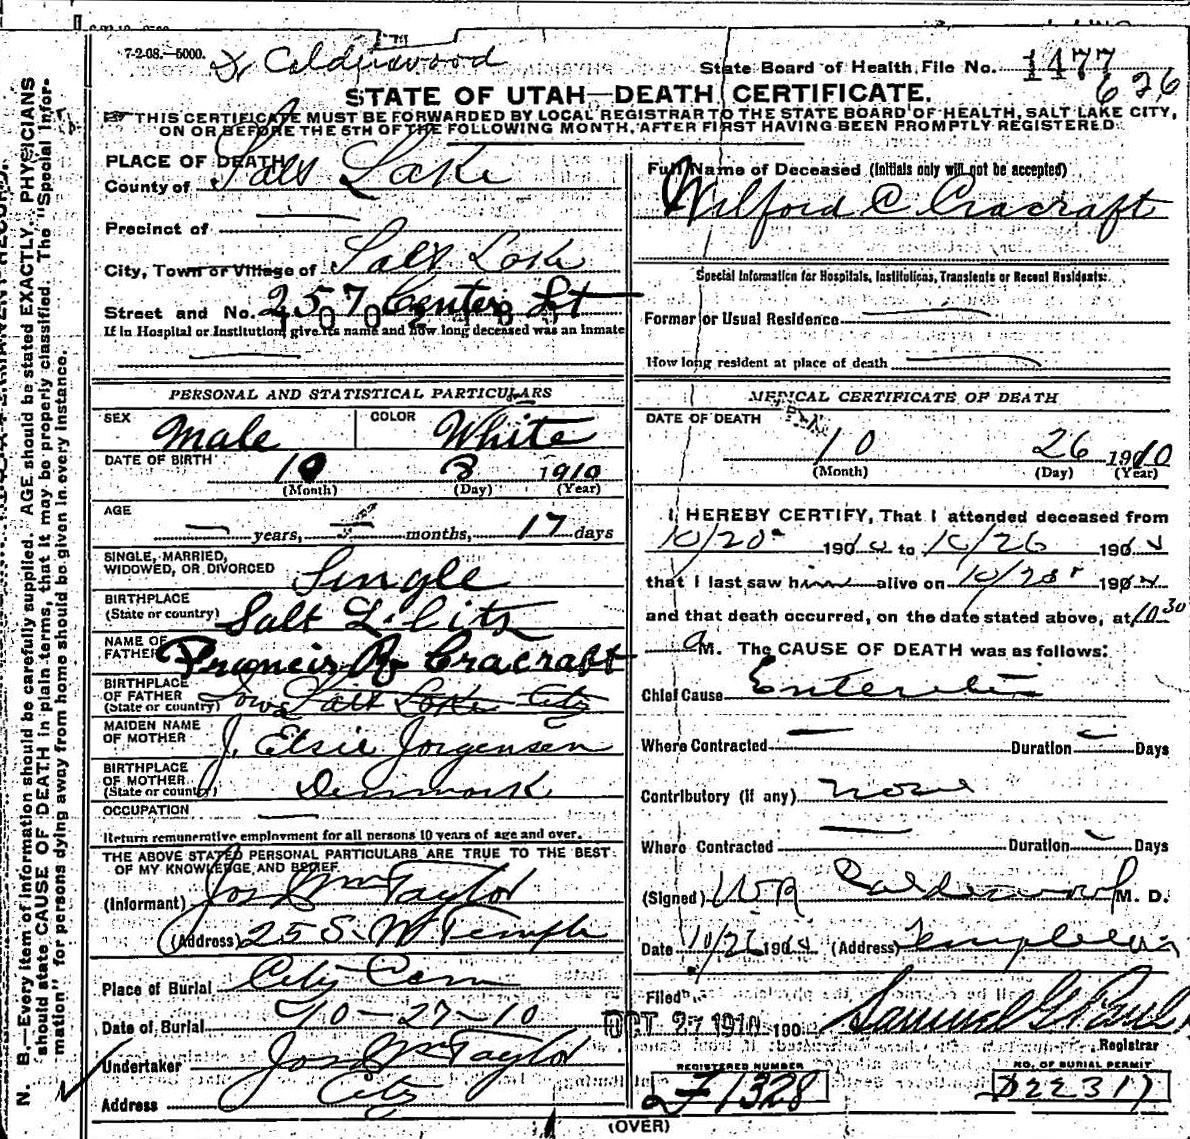 7-2-08.—5000.
Dr Calderwood
State Board of Health, File No. 1477
626
STATE OF UTAH—DEATH CERTIFICATE.
THIS CERTIFICATE MUST BE FORWARDED BY LOCAL REGISTRAR TO THE STATE BOARD OF HEALTH, SALT LAKE CITY,
ON OR BEFORE THE 5TH OF THE FOLLOWING MONTH, AFTER FIRST HAVING BEEN PROMPTLY REGISTERED
PLACE OF DEATH
County of Salt Lake
Precinct of —
City, Town or Village of Salt Lake
Street and No. 2570 Center St
If in Hospital or Institution, give its name and how long deceased was an inmate
—
PERSONAL AND STATISTICAL PARTICULARS
SEX Male COLOR White
DATE OF BIRTH 10 8 1910
(Month) (Day) (Year)
AGE
— years, — months, 17 days
SINGLE, MARRIED,
WIDOWED, OR DIVORCED Single
BIRTHPLACE
(State or country) Salt L. City
NAME OF
FATHER Francis R Cracraft
BIRTHPLACE
OF FATHER
(State or country) Iowa Salt Lake City
MAIDEN NAME
OF MOTHER J. Elsie Jorgensen
BIRTHPLACE
OF MOTHER
(State or country) Denmark
OCCUPATION —
Return remunerative employment for all persons 10 years of age and over.
THE ABOVE STATED PERSONAL PARTICULARS ARE TRUE TO THE BEST
OF MY KNOWLEDGE AND BELIEF
(Informant) Jos Wm Taylor
(Address) 25 S. W Temple
Place of Burial City Cem
Date of Burial 10-27-10
Undertaker Jos Wm Taylor
Address City
Full Name of Deceased (Initials only will not be accepted)
Wilford C Cracraft
Special Information for Hospitals, Institutions, Transients or Recent Residents:
Former or Usual Residence —
How long resident at place of death —
MEDICAL CERTIFICATE OF DEATH
DATE OF DEATH
10 26 1910
(Month) (Day) (Year)
I HEREBY CERTIFY, That I attended deceased from
10/20 1910 to 10/26 1910
that I last saw him alive on 10/25 1910
and that death occurred, on the date stated above, at 10 30
a M. The CAUSE OF DEATH was as follows:
Chief Cause Enteritis
Where Contracted — Duration — Days
Contributory (if any) none
Where Contracted — Duration — Days
(Signed) WR Calderwood M. D.
Date 10/26 1910 (Address) Templeton
Filed OCT 27 1910 190 Samuel G Paul
Registrar
REGISTERED NUMBER
F1328
NO. OF BURIAL PERMIT
D22317
(OVER)
N. B.—Every item of information should be carefully supplied. AGE should be stated EXACTLY. PHYSICIANS
should state CAUSE OF DEATH in plain terms, that it may be properly classified. The "Special Infor-
mation" for persons dying away from home should be given in every instance.